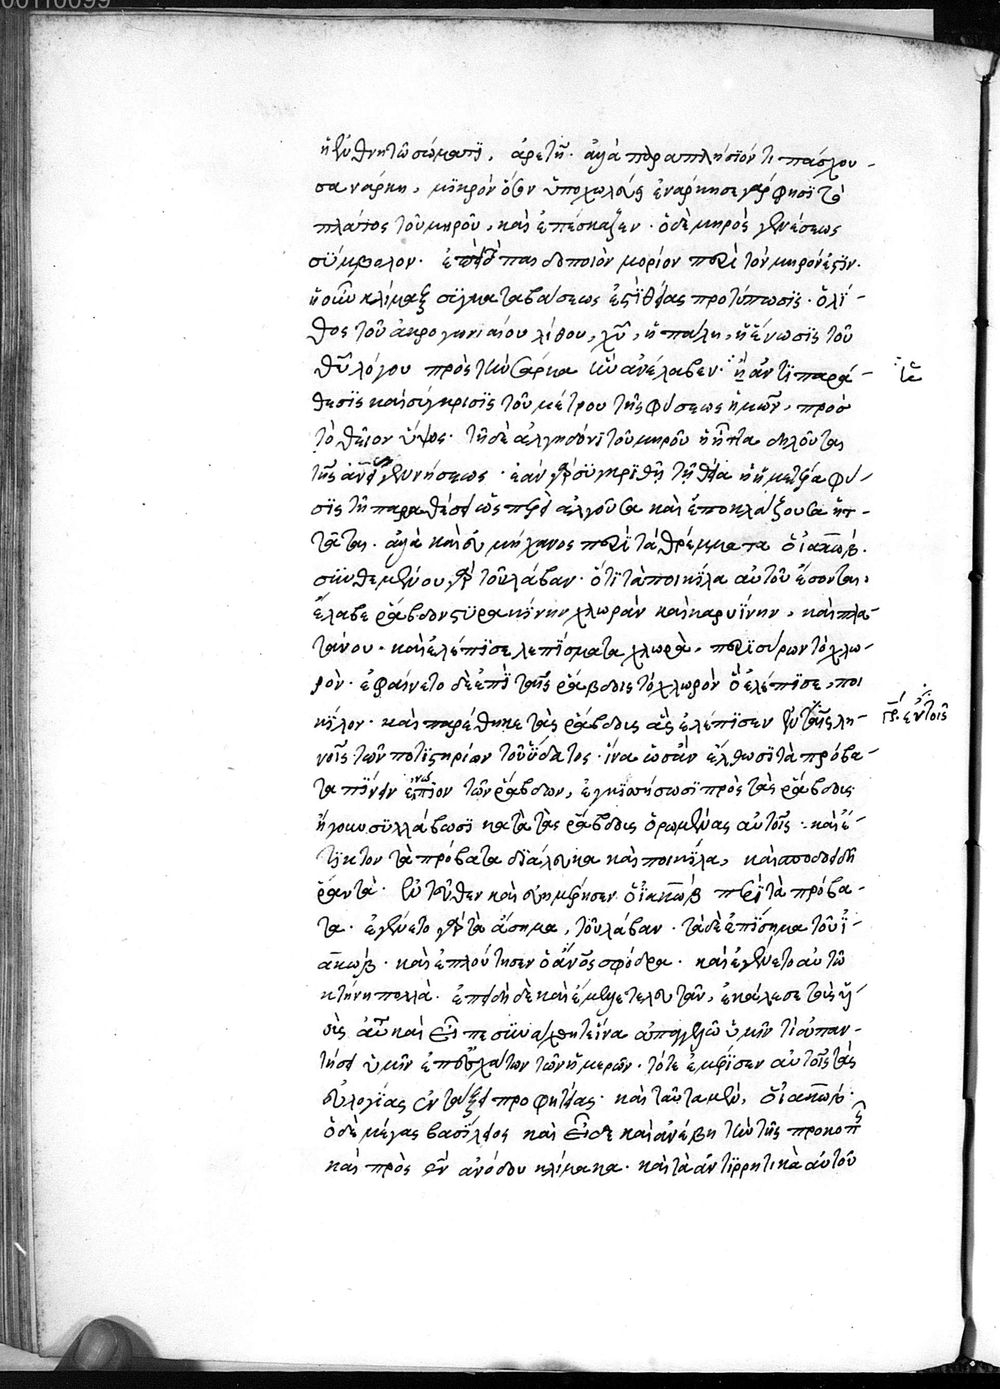 00110099
ἡ ἐν θνητῶ σώματι, ἀρετή. ἀλλὰ παραπλήσιόν τι πάσχου-
σα νάρκη, μικρὸν ὅσον ὑποχωλεύει ἐνάρκησε γάρ φησι τὸ
πλάτος τοῦ μηροῦ, καὶ ἐπέσκαζεν. ὁ δὲ μηρὸς γενέσεως
σύμβολον. ἐπειδὴ παιδοποιὸν μόριον περὶ τὸν μηρόν ἐστιν.
ἡ οὖν κλίμαξ σίγμα ταβάσεως ἐστι θείας προτύπωσις. ὁ λί-
θος τοῦ ἀκρογωνιαίου λίθου, χῦ, ἡ πάλη, ἡ ἕνωσις τοῦ
θῦ λόγου πρὸς τὴν σάρκα ἣν ἀνέλαβεν. ἢ ἀντιπαρά-
θεσις καὶ σύγκρισις τοῦ μέτρου τῆς φύσεως ἡμῶν, πρὸς
τὸ θεῖον ὕψος. τῆ δὲ ἀλγηδόνι τοῦ μηροῦ ἡ ἧττα δηλοῦται
τῆς ἀνθρωπίνης γεννήσεως. ἐὰν γὰρ συγκριθῆ τῆ θεία ἡ ἡμετέρα φύ-
σις τῆ παραθέσει ὥσπερ ἀλγοῦσα καὶ ἐποκλάζουσα ἡτ-
τᾶται. ἀλλὰ καὶ εὐμήχανος περὶ τὰ θρέμματα ὁ ἰακώβ.
συνθεμένου γὰρ τοῦ λάβαν. ὅτι τὰ ποικίλα αὐτοῦ ἔσονται,
ἔλαβε ῥάβδον στυρακίνην χλωρὰν καὶ καρυΐνην, καὶ πλα-
τάνου. καὶ ἐλέπισε λεπίσματα χλωρὰ, περισύρων τὸ χλω-
ρόν. ἐφαίνετο δὲ ἐπὶ ταῖς ῥάβδοις τὸ χλωρὸν ὃ ἐλέπισε, ποι
κίλον. καὶ παρέθηκε τὰς ῥάβδους ἃς ἐλέπισεν ἐν ταῖς λη-
νοῖς τῶν ποτιστηρίων τοῦ ὕδατος. ἵνα ὡς ἂν ἔλθωσι τὰ πρόβα-
τα πίνειν ἐνώπιον τῶν ῥάβδων, ἐγκισσήσωσι πρὸς τὰς ῥάβδους
ἤγουν συλλάβωσι κατὰ τὰς ῥάβδους ὁρωμένας αὐτοῖς. καὶ ἔ-
τικτον τὰ πρόβατα διάλευκα καὶ ποικίλα, καὶ σποδοειδῆ
ῥαντά. ἐντεῦθεν καὶ εὐημέρησεν ὁ ἰακώβ περὶ τὰ πρόβα-
τα. ἐγένετο γὰρ τὰ ἄσημα, τοῦ λάβαν. τὰ δὲ ἐπίσημα τοῦ ἰ-
ακώβ. καὶ ἐπλούτησεν ὁ ἄνος σφόδρα. καὶ ἐγένετο αὐτῶ
κτήνη πολλά. ἐπειδὴ δὲ καὶ ἔμελλε τελευτᾶν, ἐκάλεσε τοὺς υἱ-
οὺς αὐτοῦ καὶ εἶπε συνάχθητε ἵνα ἀπαγγελῶ ὑμῖν τί ἀπαν-
τήσει ὑμῖν ἐπ' ἐσχάτων τῶν ἡμερῶν. τότε ἐμέρισεν αὐτοῖς τὰς
εὐλογίας ἐν τάξει προφητείας. καὶ ταῦτα μὲν, ὁ ἰακώβ.
ὁ δὲ μέγας βασίλειος καὶ εἶδε καὶ ἀνέβη τὴν τῆς προκοπῆς
καὶ πρὸς θεὸν ἀνόδου κλίμακα. καὶ τὰ ἀντιρρητικὰ αὐτοῦ
γρ. ἐν τοῖς